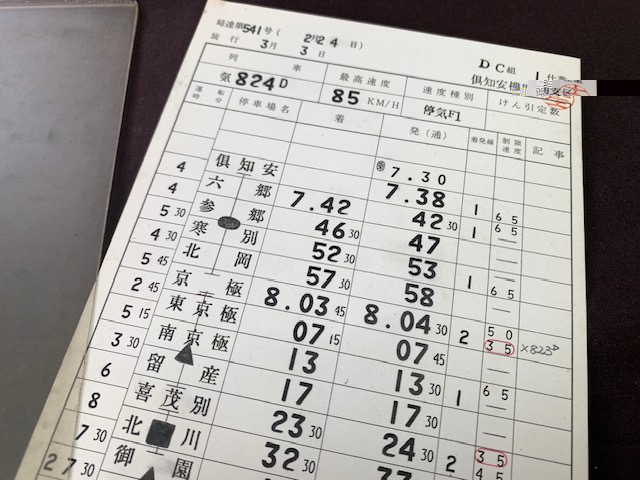 局達第541号(2月24日) DC組 1仕業
施行 3月 3日 俱知安機関支区
列車 最高速度 速度種別 けん引定数
気824D 85KM/H 停気F1
運転時分 停車場名 着 発(通) 着発線 制限速度 記事
俱知安 7.30
4 六郷 7.38 1 65
4 参郷 7.42 42 30 1 65
5 30 寒別 46 30 47
4 30 北岡 52 30 53
5 45 京極 57 30 58 1 65
2 45 東京極 8.03 45 8.04 30 2 50 35 ×823D
5 15 南京極 07 15 07 45
3 30 留産 13 13 30 1 65
6 喜茂別 17 17 30
8 北川 23 30 24 30 2 35
7 30 御園 32 30 33 45
27 30